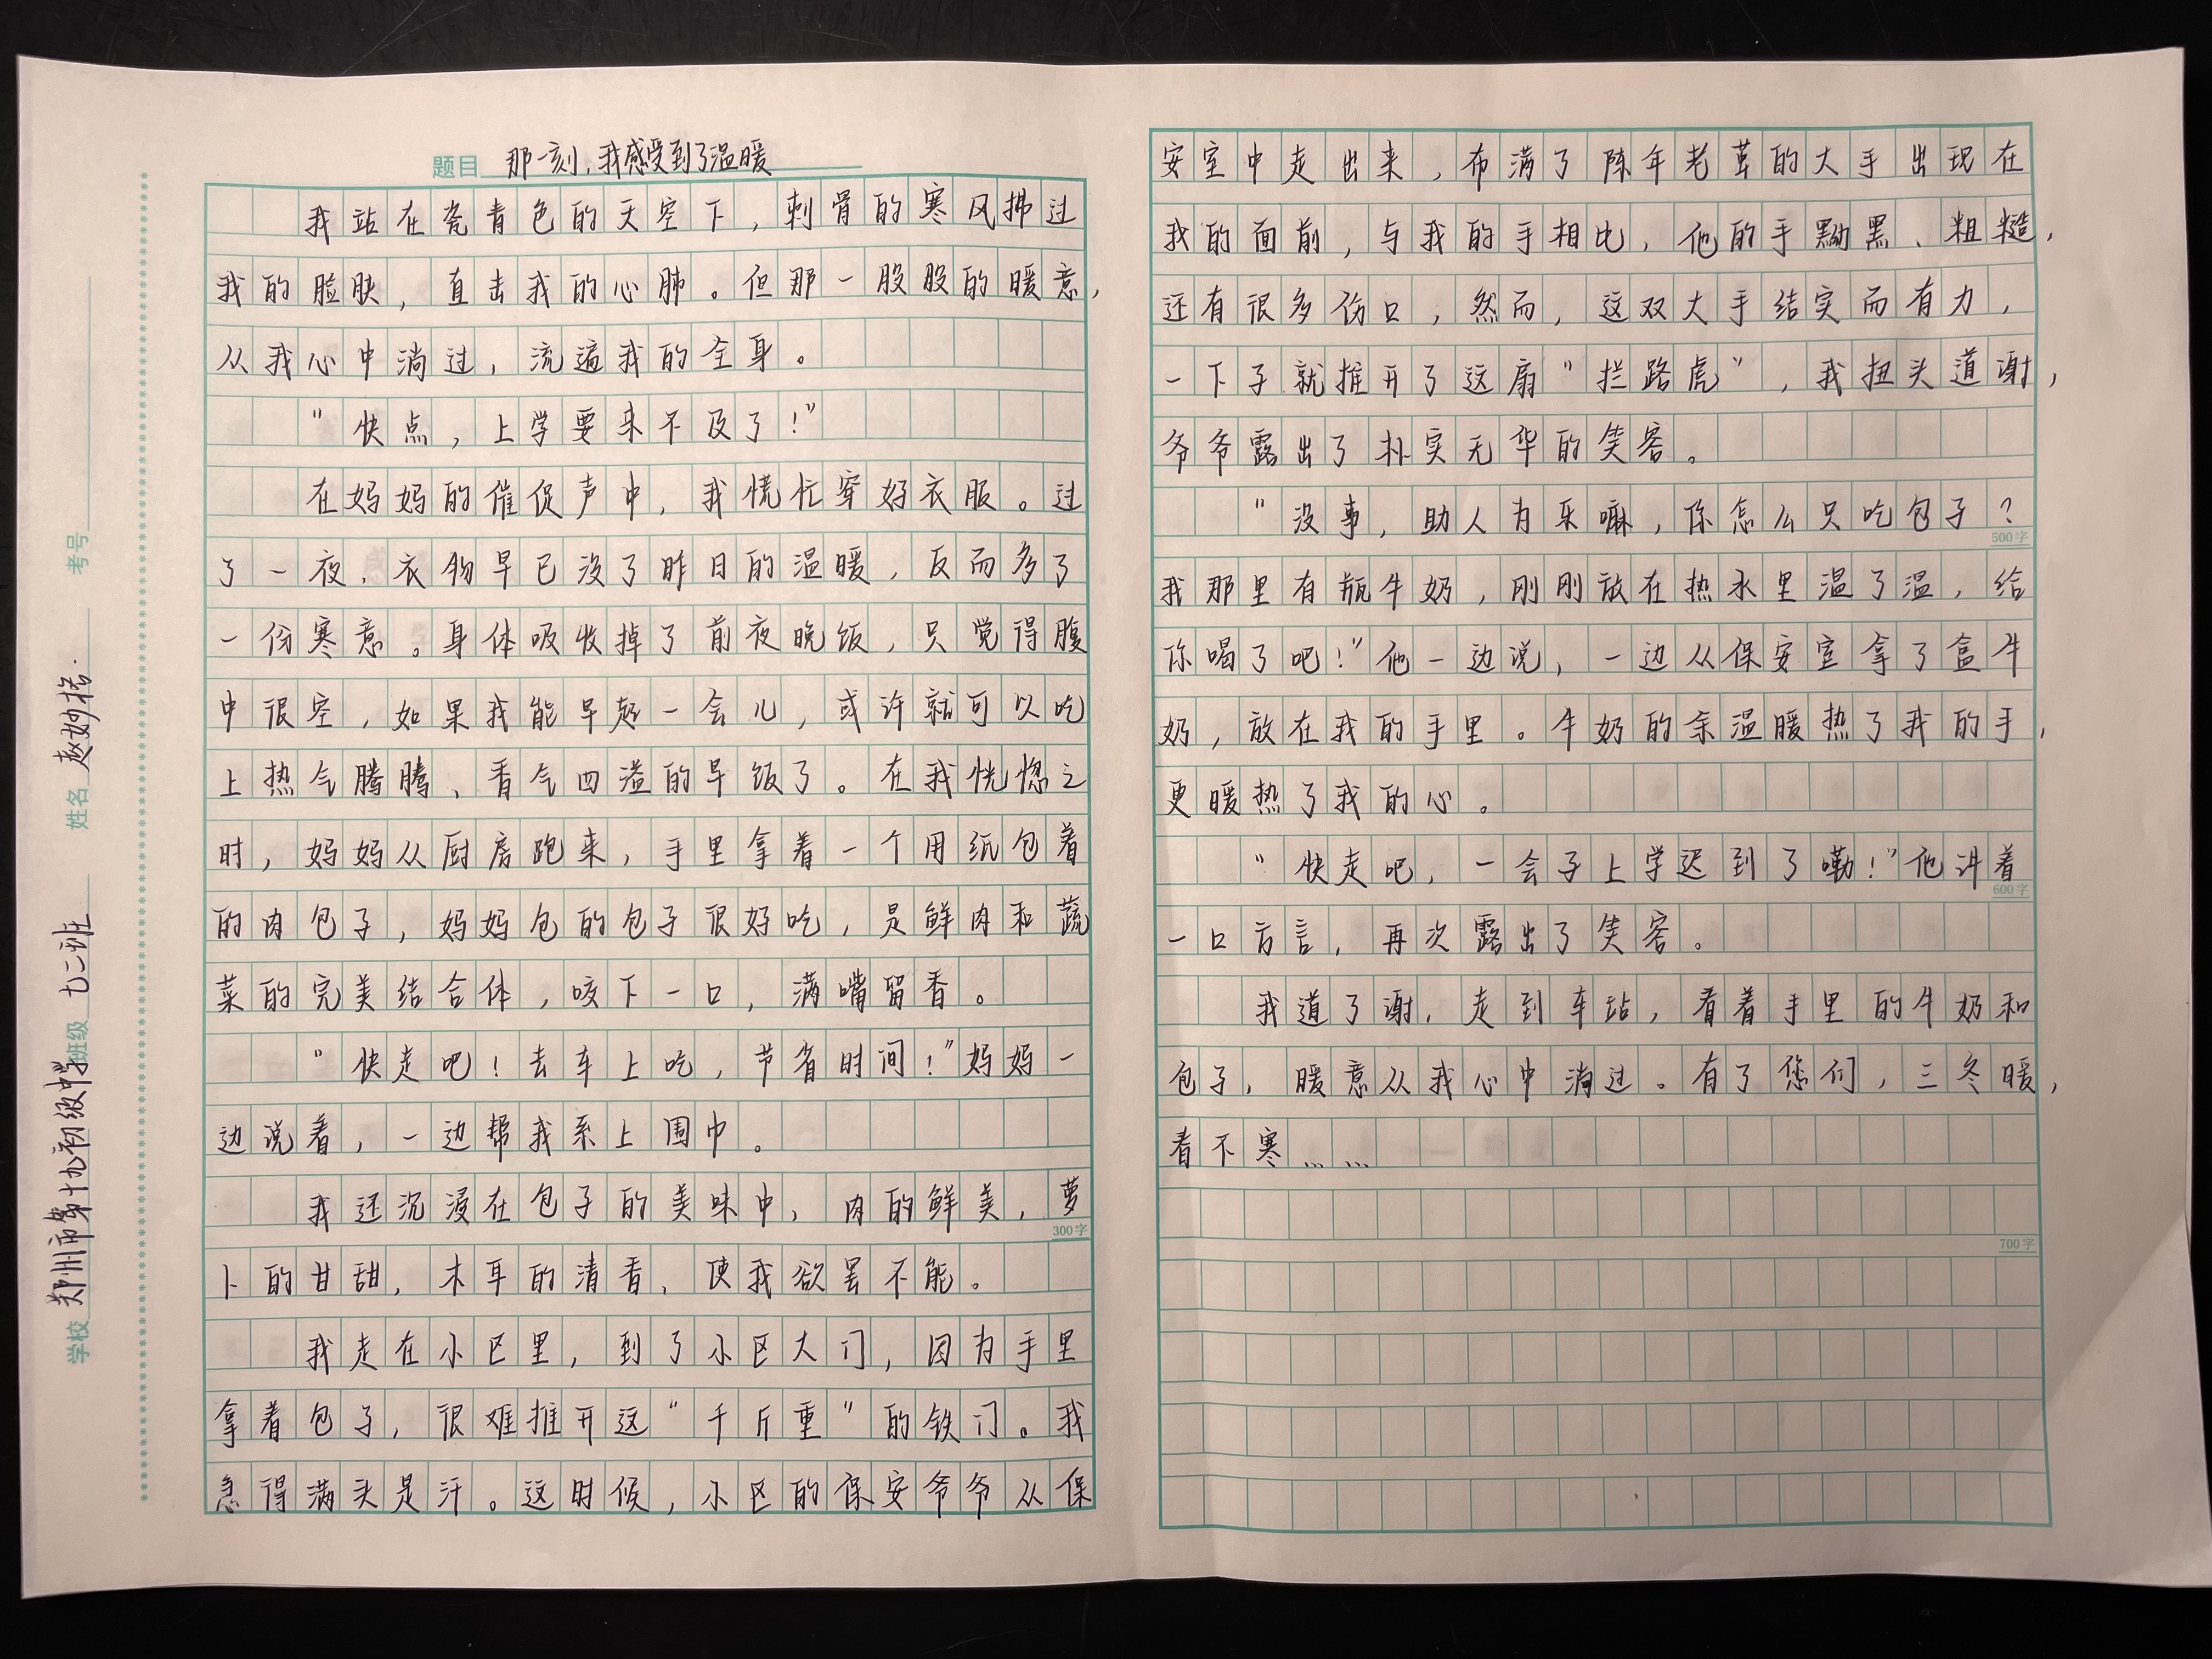 题目 那一刻，我感受到了温暖
我站在瓷青色的天空下，刺骨的寒风拂过
我的脸肤，直击我的心肺。但那一股股的暖意，
从我心中淌过，流遍我的全身。
“快点，上学要来不及了！”
在妈妈的催促声中，我慌忙穿好衣服。过
了一夜，衣物早已没了昨日的温暖，反而多了
一份寒意。身体吸收掉了前夜晚饭，只觉得腹
中很空，如果我能早起一会儿，或许就可以吃
上热气腾腾、香气四溢的早饭了。在我恍惚之
时，妈妈从厨房跑来，手里拿着一个用纸包着
的肉包子，妈妈包的包子很好吃，是鲜肉和蔬
菜的完美结合体，咬下一口，满嘴留香。
“快走吧！去车上吃，节省时间！”妈妈一
边说着，一边帮我系上围巾。
我还沉浸在包子的美味中，肉的鲜美，萝
300字
卜的甘甜，木耳的清香，使我欲罢不能。
我走在小区里，到了小区大门，因为手里
拿着包子，很难推开这“千斤重”的铁门。我
急得满头是汗。这时候，小区的保安爷爷从保
安室中走出来，布满了陈年老茧的大手出现在
我的面前，与我的手相比，他的手黝黑、粗糙，
还有很多伤口，然而，这双大手结实而有力，
一下子就推开了这扇“拦路虎”，我扭头道谢，
爷爷露出了朴实无华的笑容。
“没事，助人为乐嘛，你怎么只吃包子？
500字
我那里有瓶牛奶，刚刚放在热水里温了温，给
你喝了吧！”他一边说，一边从保安室拿了盒牛
奶，放在我的手里。牛奶的余温暖热了我的手，
更暖热了我的心。
“快走吧，一会子上学迟到了嘞！”他讲着
600字
一口方言，再次露出了笑容。
我道了谢，走到车站，看着手里的牛奶和
包子，暖意从我心中淌过。有了您们，三冬暖，
看不寒……
700字
学校 郑州市第十九初级中学 班级 七二班 姓名 赵妙搭 考号